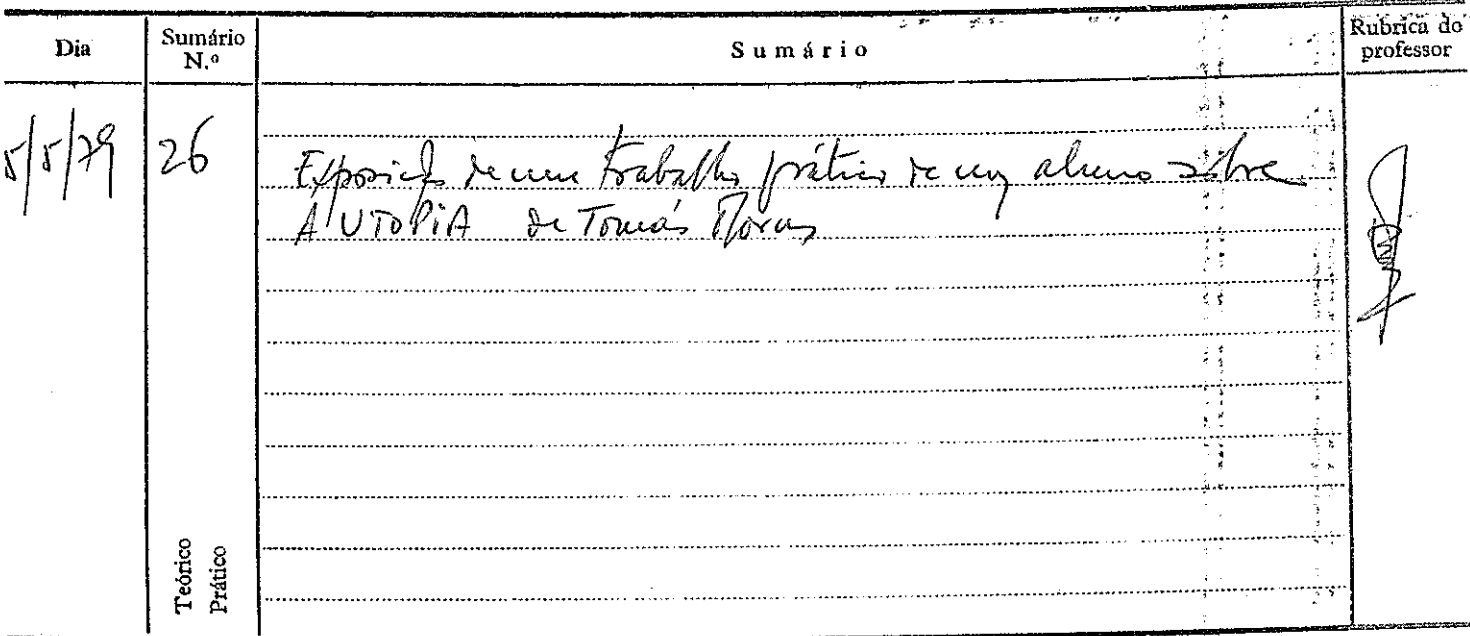 Dia
Sumário
N.º
Sumário
Rubrica do
professor
5/5/79
26
Exposição de um trabalho prático de um aluno sobre
A UTOPIA de Tomás Morus
Teórico
Prático